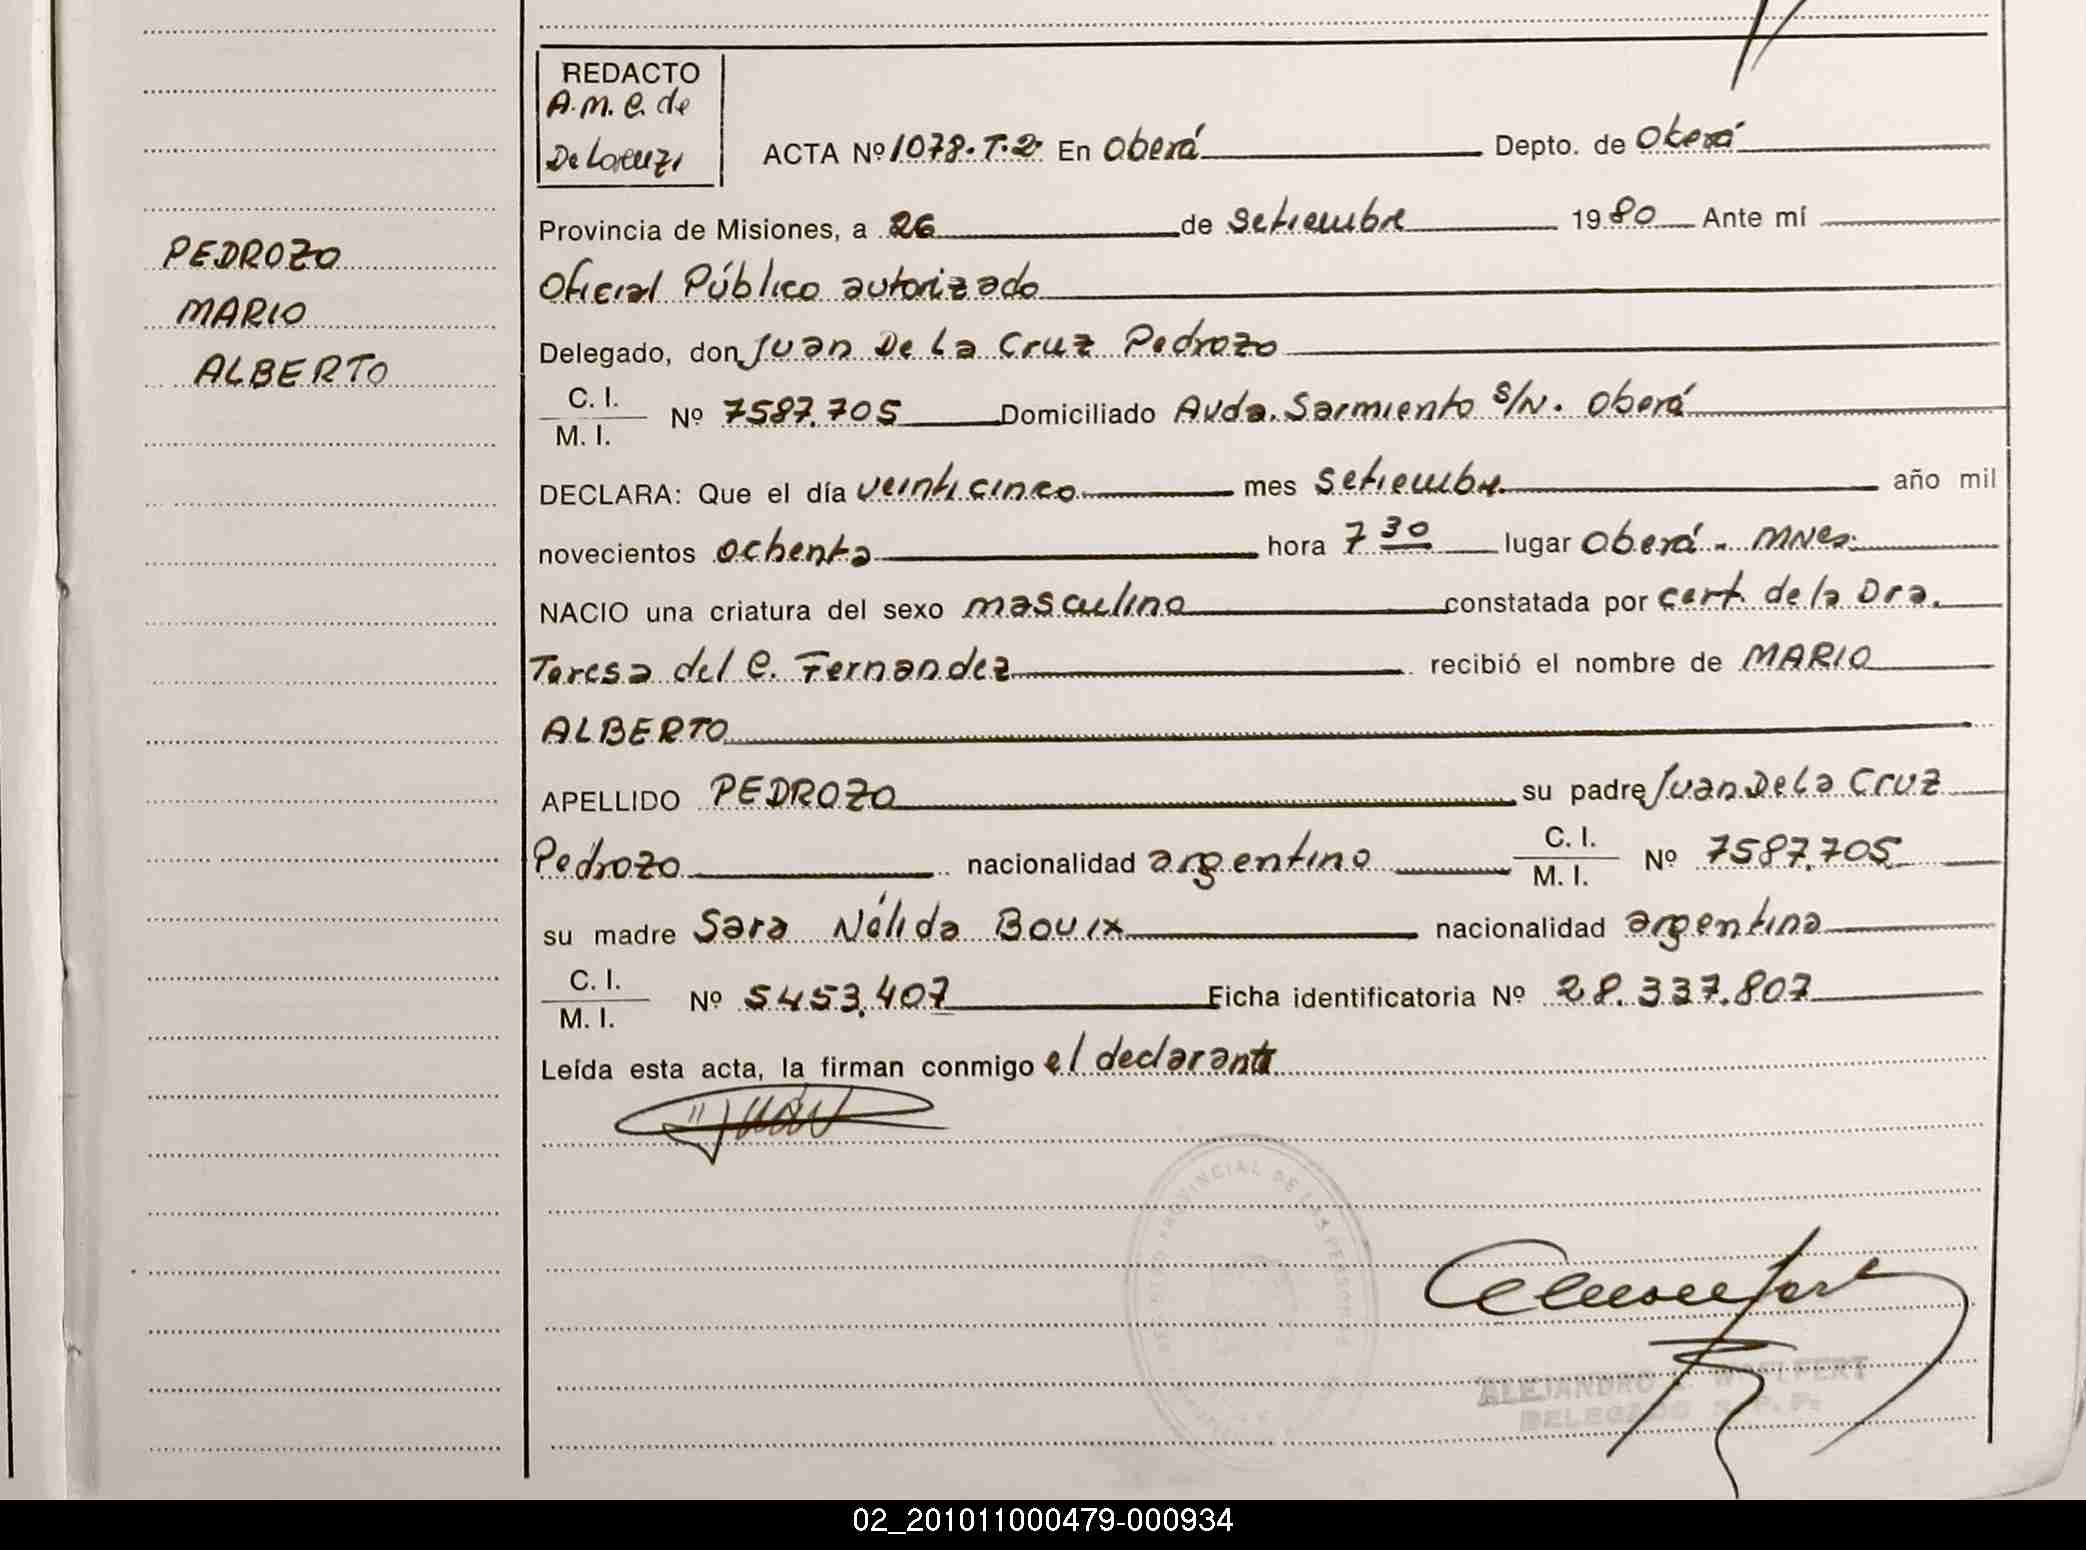 REDACTO
A. M. C. de
De Lorenzi
ACTA Nº 1078. T. 2. En Oberá Depto. de Oberá
Provincia de Misiones, a 26 de setiembre 1980 Ante mí
Oficial Público autorizado
Delegado, don Juan De La Cruz Pedrozo
C. I.
M. I. Nº 7587.705 Domiciliado Avda. Sarmiento s/N. Oberá
DECLARA: Que el día veinticinco mes setiembre año mil
novecientos ochenta hora 7 30 lugar Oberá - MNes.
NACIO una criatura del sexo masculino constatada por cert. de la Dra.
Teresa del C. Fernandez recibió el nombre de MARIO
ALBERTO
APELLIDO PEDROZO su padre Juan De La Cruz
Pedrozo nacionalidad argentino C. I. M. I. Nº 7587.705
su madre Sara Nélida Bouix nacionalidad argentina
C. I.
M. I. Nº 5453.407 Ficha identificatoria Nº 28.337.807
Leída esta acta, la firman conmigo el declarante
PEDROZO
MARIO
ALBERTO
PROVINCIAL DE LAS PERSONAS
ALEJANDRO WOELFERT
DELEGADO
02_201011000479-000934